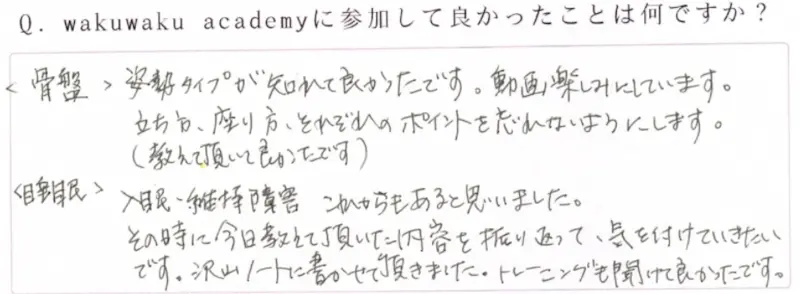 Q. wakuwaku academyに参加して良かったことは何ですか？
<骨盤> 姿勢タイプが知れて良かったです。動画楽しみにしています。
立ち方、座り方、それぞれのポイントを忘れないようにします。
(教えて頂いて良かったです)
<睡眠> 入眠・維持障害 これからもあると思いました。
その時に今日教えて頂いた内容を振り返って、気を付けていきたい
です。沢山ノートに書かせて頂きました。トレーニングも聞けて良かったです。